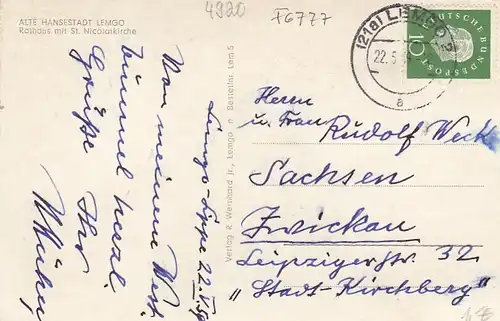 ALTE HANSESTADT LEMGO
Rathaus mit St. Nicolaikirche
4920
F6777
(21a) LEMGO
22.5.
a
DEUTSCHE BUNDESPOST
10
Lemgo-Lippe 22.V.59
Von meinem West
bummel herzl.
Grüße Ihr
Verlag R. Wernhard Jr., Lemgo Bestellnr. Lem 5
Herrn
u. Frau Rudolf Weckl
Sachsen
Zwickau
Leipzigerstr. 32
„Stadt-Kirchberg"